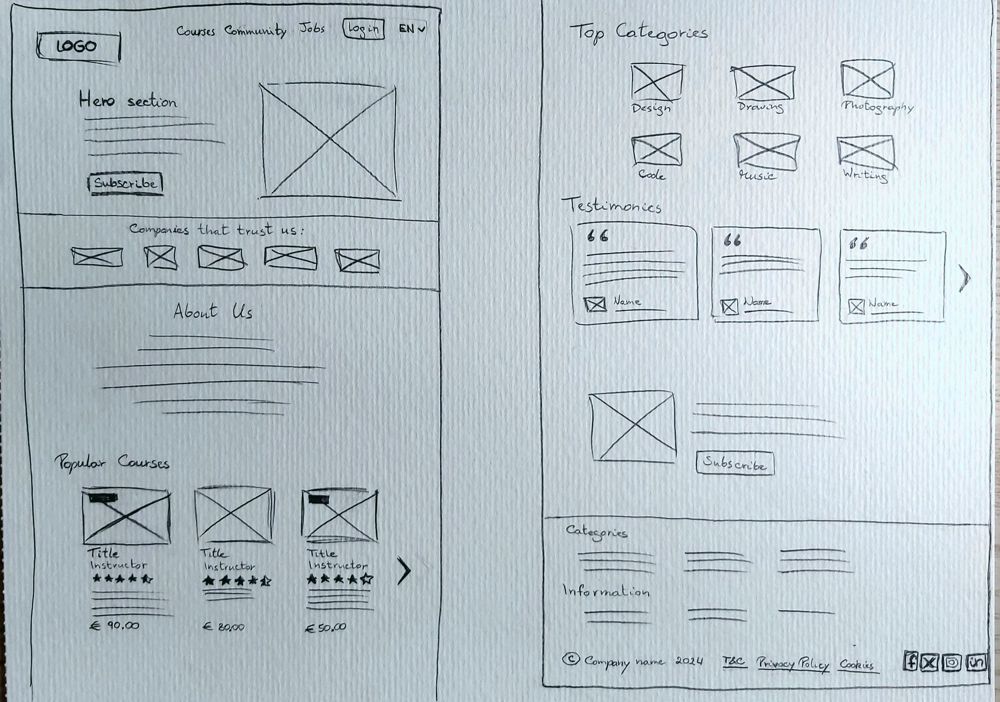 LOGO
Courses Community Jobs Log in EN
Hero section
Subscribe
Companies that trust us:
About Us
Popular Courses
Title Title Title
Instructor Instructor Instructor
€ 90,00 € 80,00 € 50,00
Top Categories
Design Drawing Photography
Code Music Writing
Testimonies
Name Name Name
Subscribe
Categories
Information
© Company name 2024 T&C Privacy Policy Cookies f X in